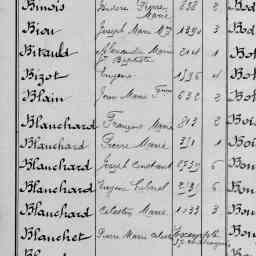 Binois Isidore Pierre Marie 838 2 Bod
Biou Joseph Marie 1890 3 Bod
Bitauld Alexandre Marie Jn Baptiste 204 1 Bot
Bizot Eugène 1896 4 Bot
Blain Jean Marie 632 2 Bot
Blanchard François Marie 812 2 Boi
Blanchard Pierre Marie 351 1 Bois
Blanchard Joseph Constant 6 Bon
Blanchard Eugène Gabriel 6 Bon
Blanchard Célestin Marie 1133 3 Bon
Blanchet Pierre Marie Bou